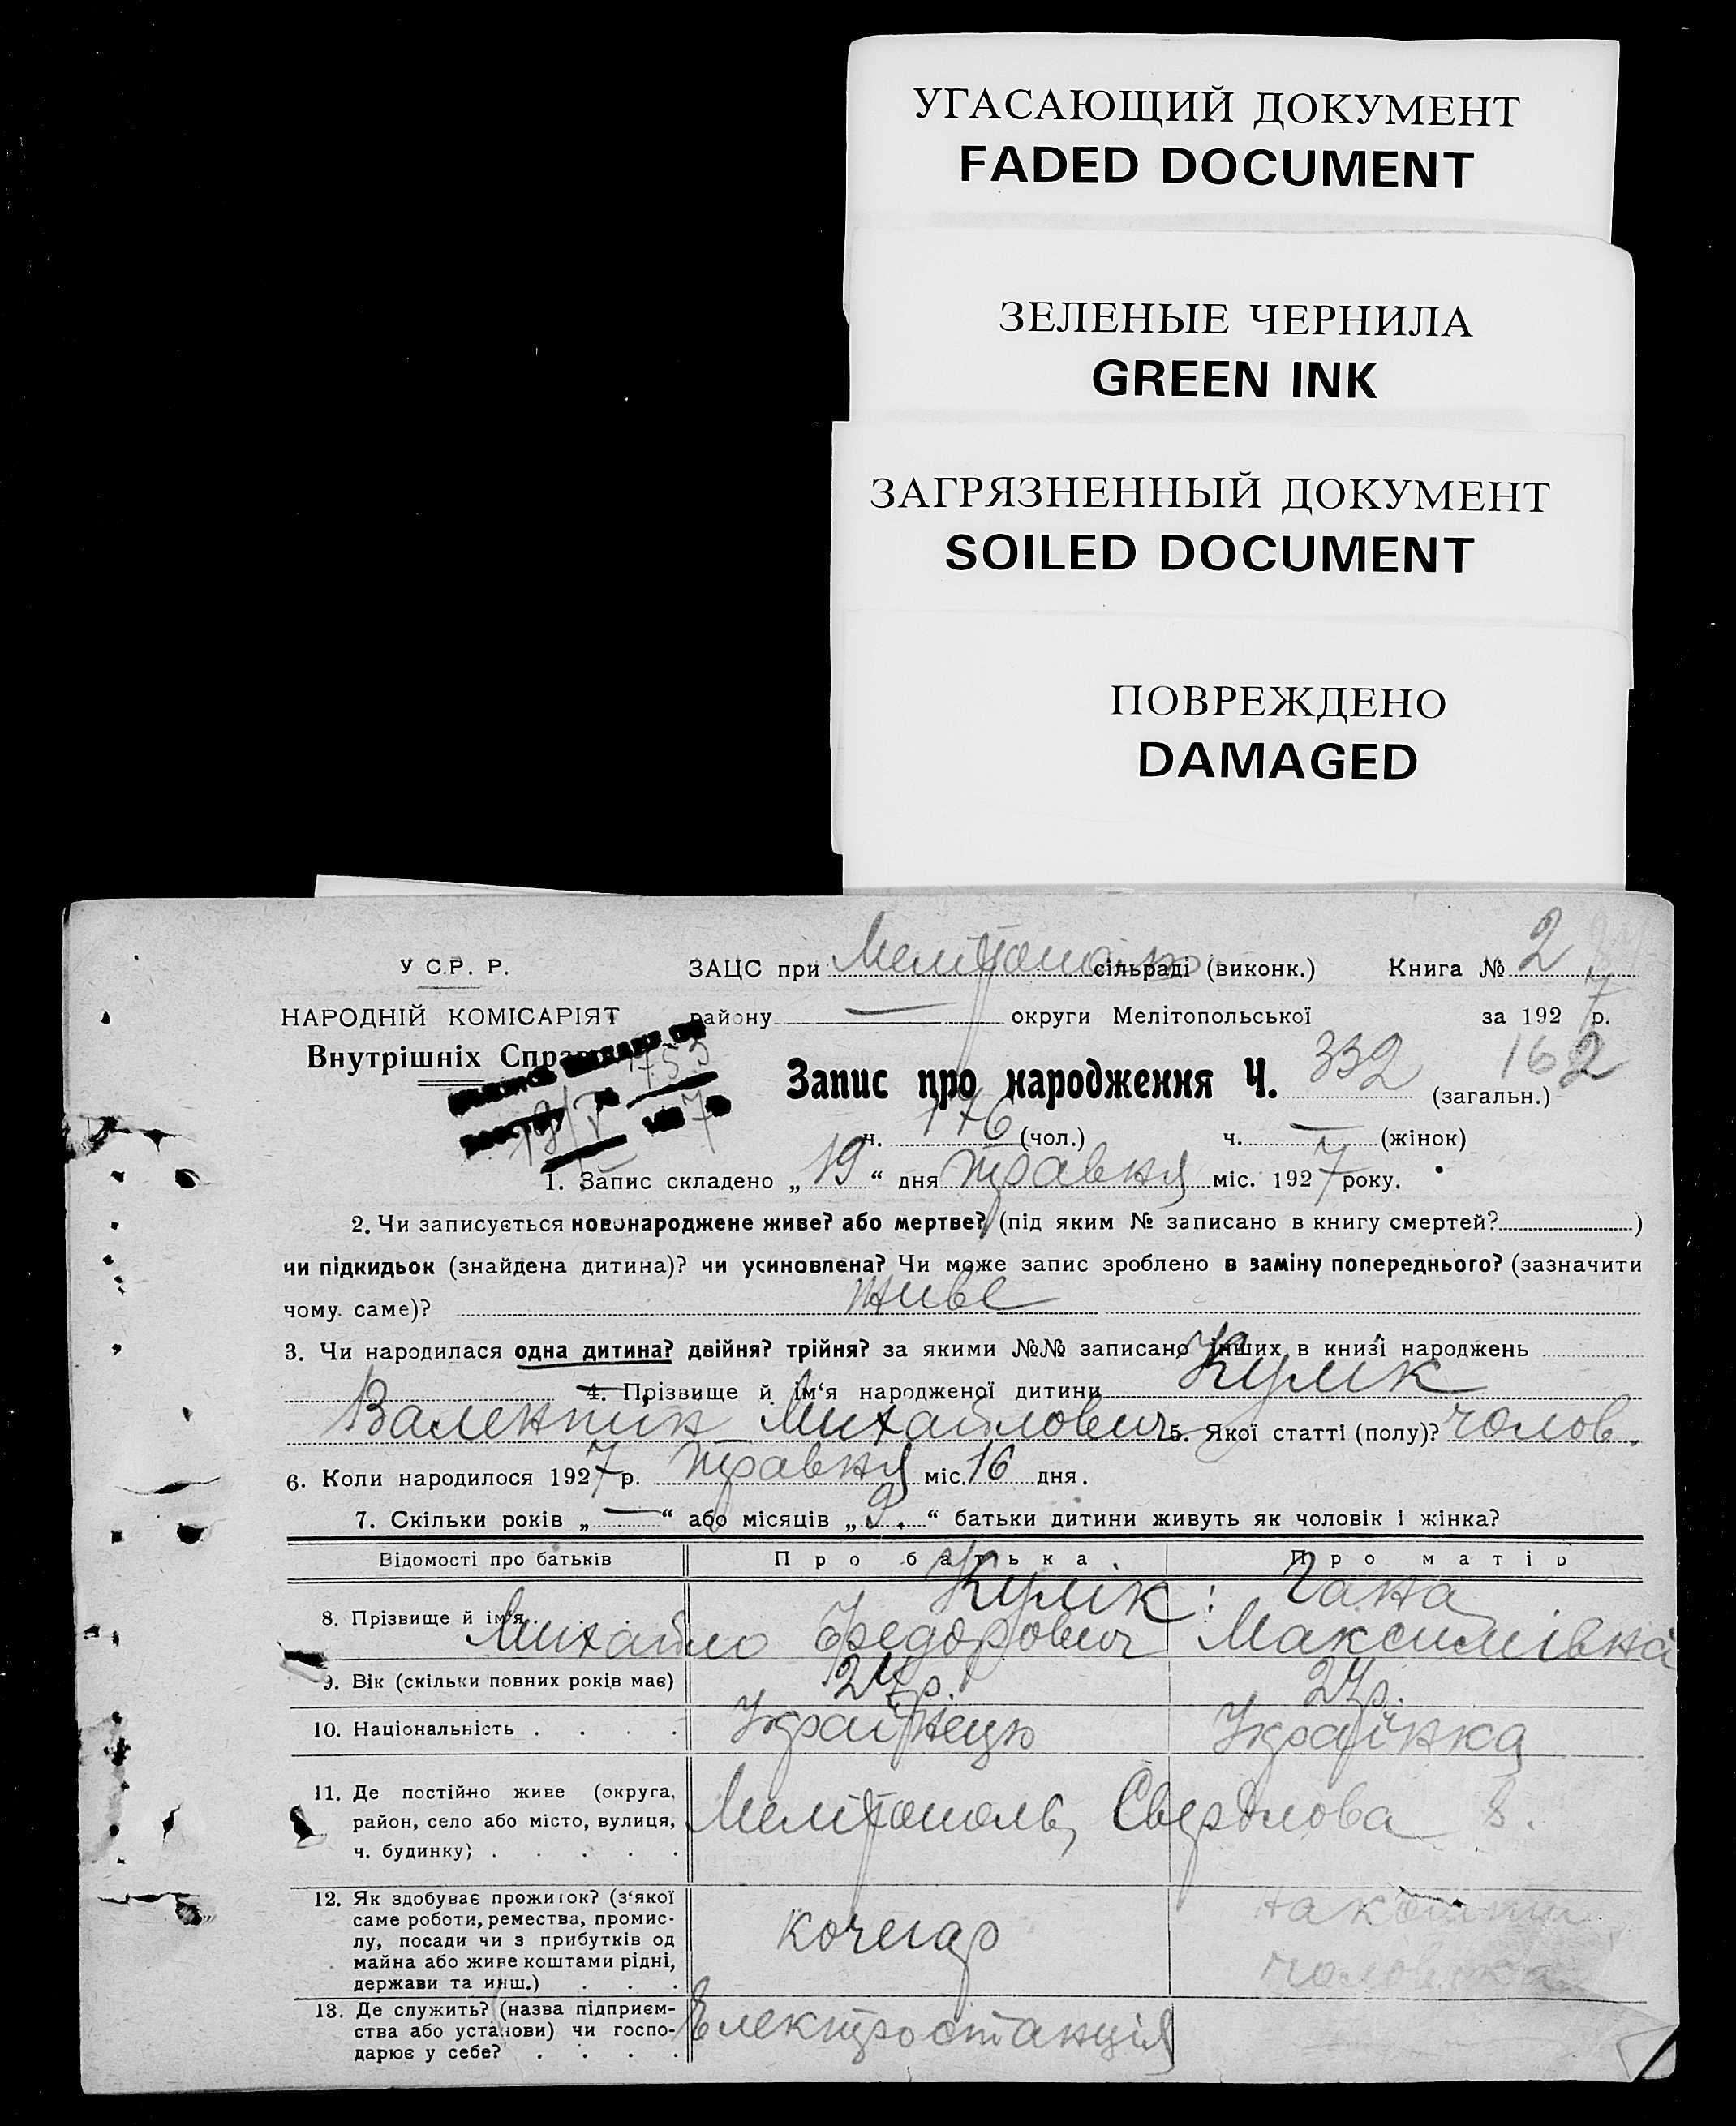 УГАСАЮЩИЙ ДОКУМЕНТ
FADED DOCUMENT
ЗЕЛЕНЫЕ ЧЕРНИЛА
GREEN INK
ЗАГРЯЗНЕННЫЙ ДОКУМЕНТ
SOILED DOCUMENT
ПОВРЕЖДЕНО
DAMAGED
У С.Р. Р. ЗАЦС при сільраді (виконк.) Книга № 2
НАРОДНІЙ КОМІСАРІЯТ району — округи Мелітопольської за 1927 р.
Внутрішніх Справ 1753
Запис про народження Ч. 332 (загальн.) 162
19/V 7
ч. 176 (чол.) ч. — (жінок)
1. Запис складено „19“ дня травня міс. 1927 року.
2. Чи записується новонароджене живе? або мертве? (під яким № записано в книгу смертей? )
чи підкидьок (знайдена дитина)? чи усиновлена? Чи може запис зроблено в заміну попереднього? (зазначити
чому саме)? живе
3. Чи народилася одна дитина? двійня? трійня? за якими №№ записано інших в книзі народжень
4. Прізвище й ім‘я народженої дитини Кулик
Валентин Михайлович 5. Якої статті (полу)? чолов.
6. Коли народилося 1927 р. травня міс. 16 дня.
7. Скільки років „—“ або місяців „9.“ батьки дитини живуть як чоловік і жінка?
Відомості про батьків Про батька Про матір
Кулік: Гана
8. Прізвище й ім‘я . Михайло Федорович Максимівна
9. Вік (скільки повних років має) 24 р. 24 р.
10. Національність . . . . Українець Українка
11. Де постійно живе (округа,
район, село або місто, вулиця, Мелітополь, Свердлова 8.
ч. будинку) . . . . .
12. Як здобуває прожиток? (з‘якої
саме роботи, ремества, промис- на кошти
лу, посади чи з прибутків од кочегар
майна або живе коштами рідні, чоловіка
держави та инш.) . . .
13. Де служить? (назва підприєм-
ства або установи) чи госпо- Електростанція
дарює у себе? . . . .